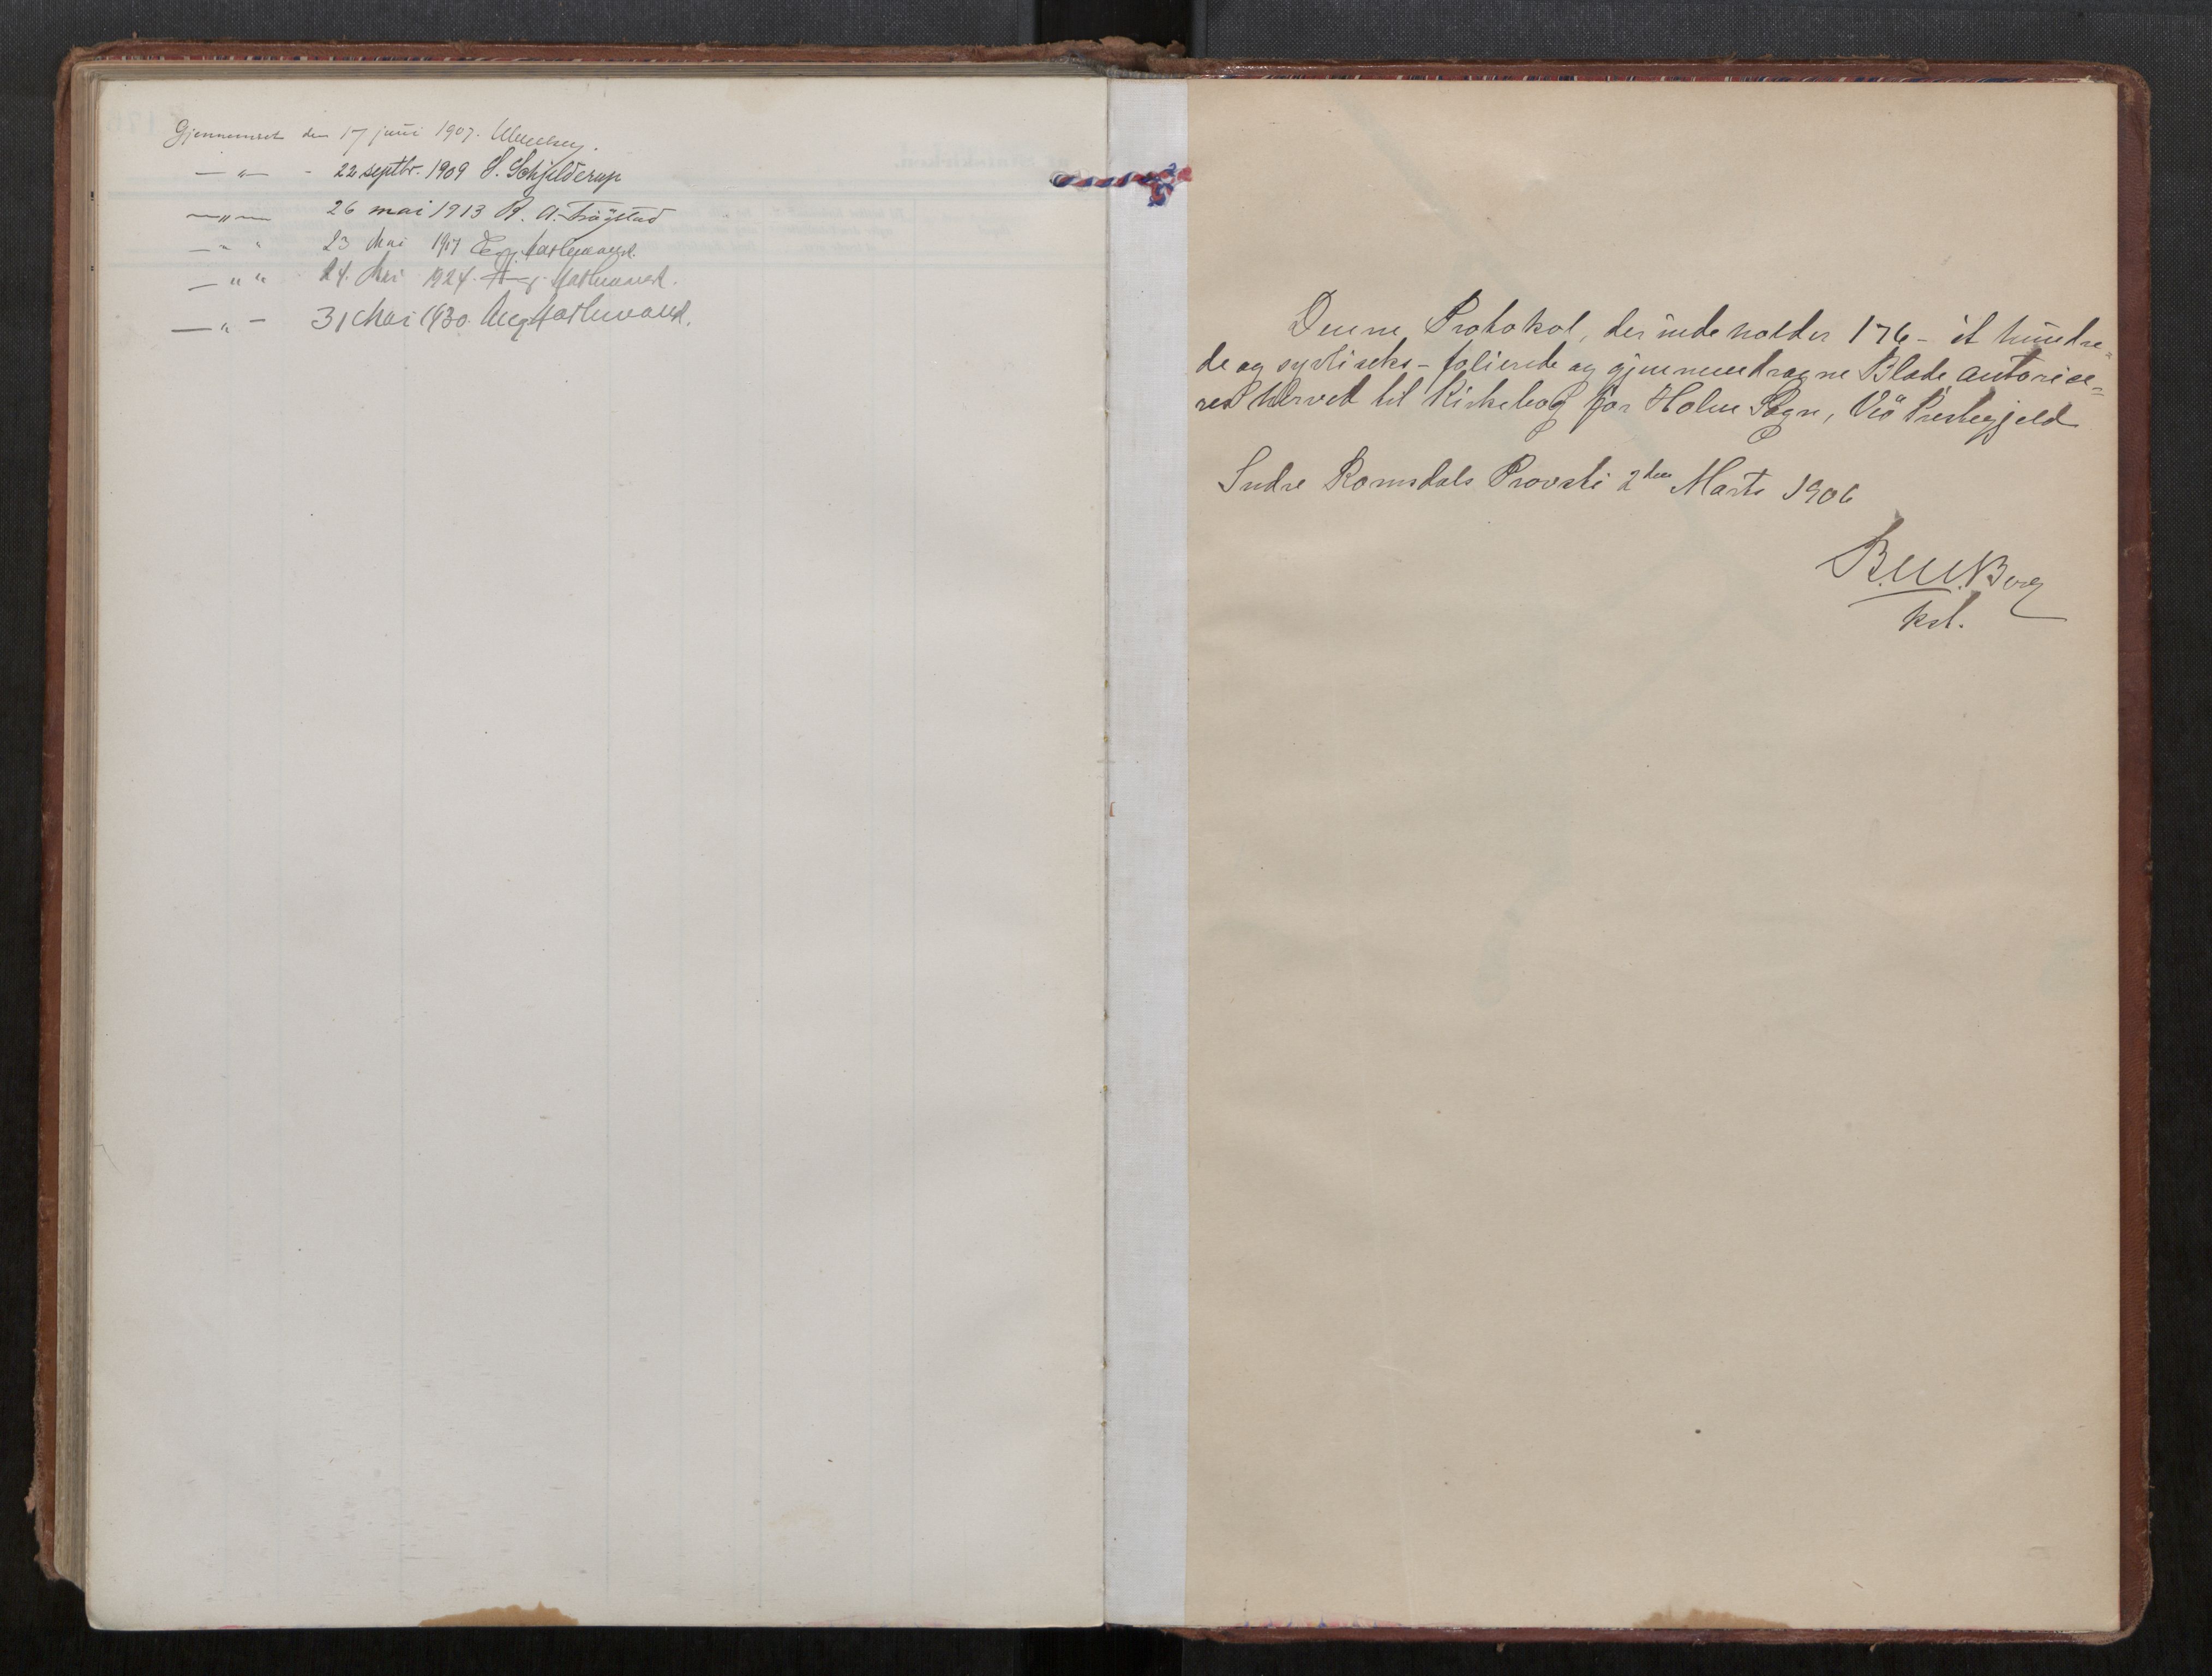 Gjennemset den 17 juni 1907.
— " — - 22 septbr. 1909 S. Schjelderup
— " — 26 mai 1913 R. A. Frøystad
— " " 23 Mai 1917
— " " 24. Mai 1924.
— " — 31 Mai 1930. Aug
Denne Protokol, der inde holder 176 - et hundre=
de og sytti seks - folierede og gjennemdragne Blade autorise=
res herved til Kirkebog for Holm Sogn, Veø Prestegjeld
Indre Romsdals Provsti 2den Marts 1906
B.M.Berg
kst.